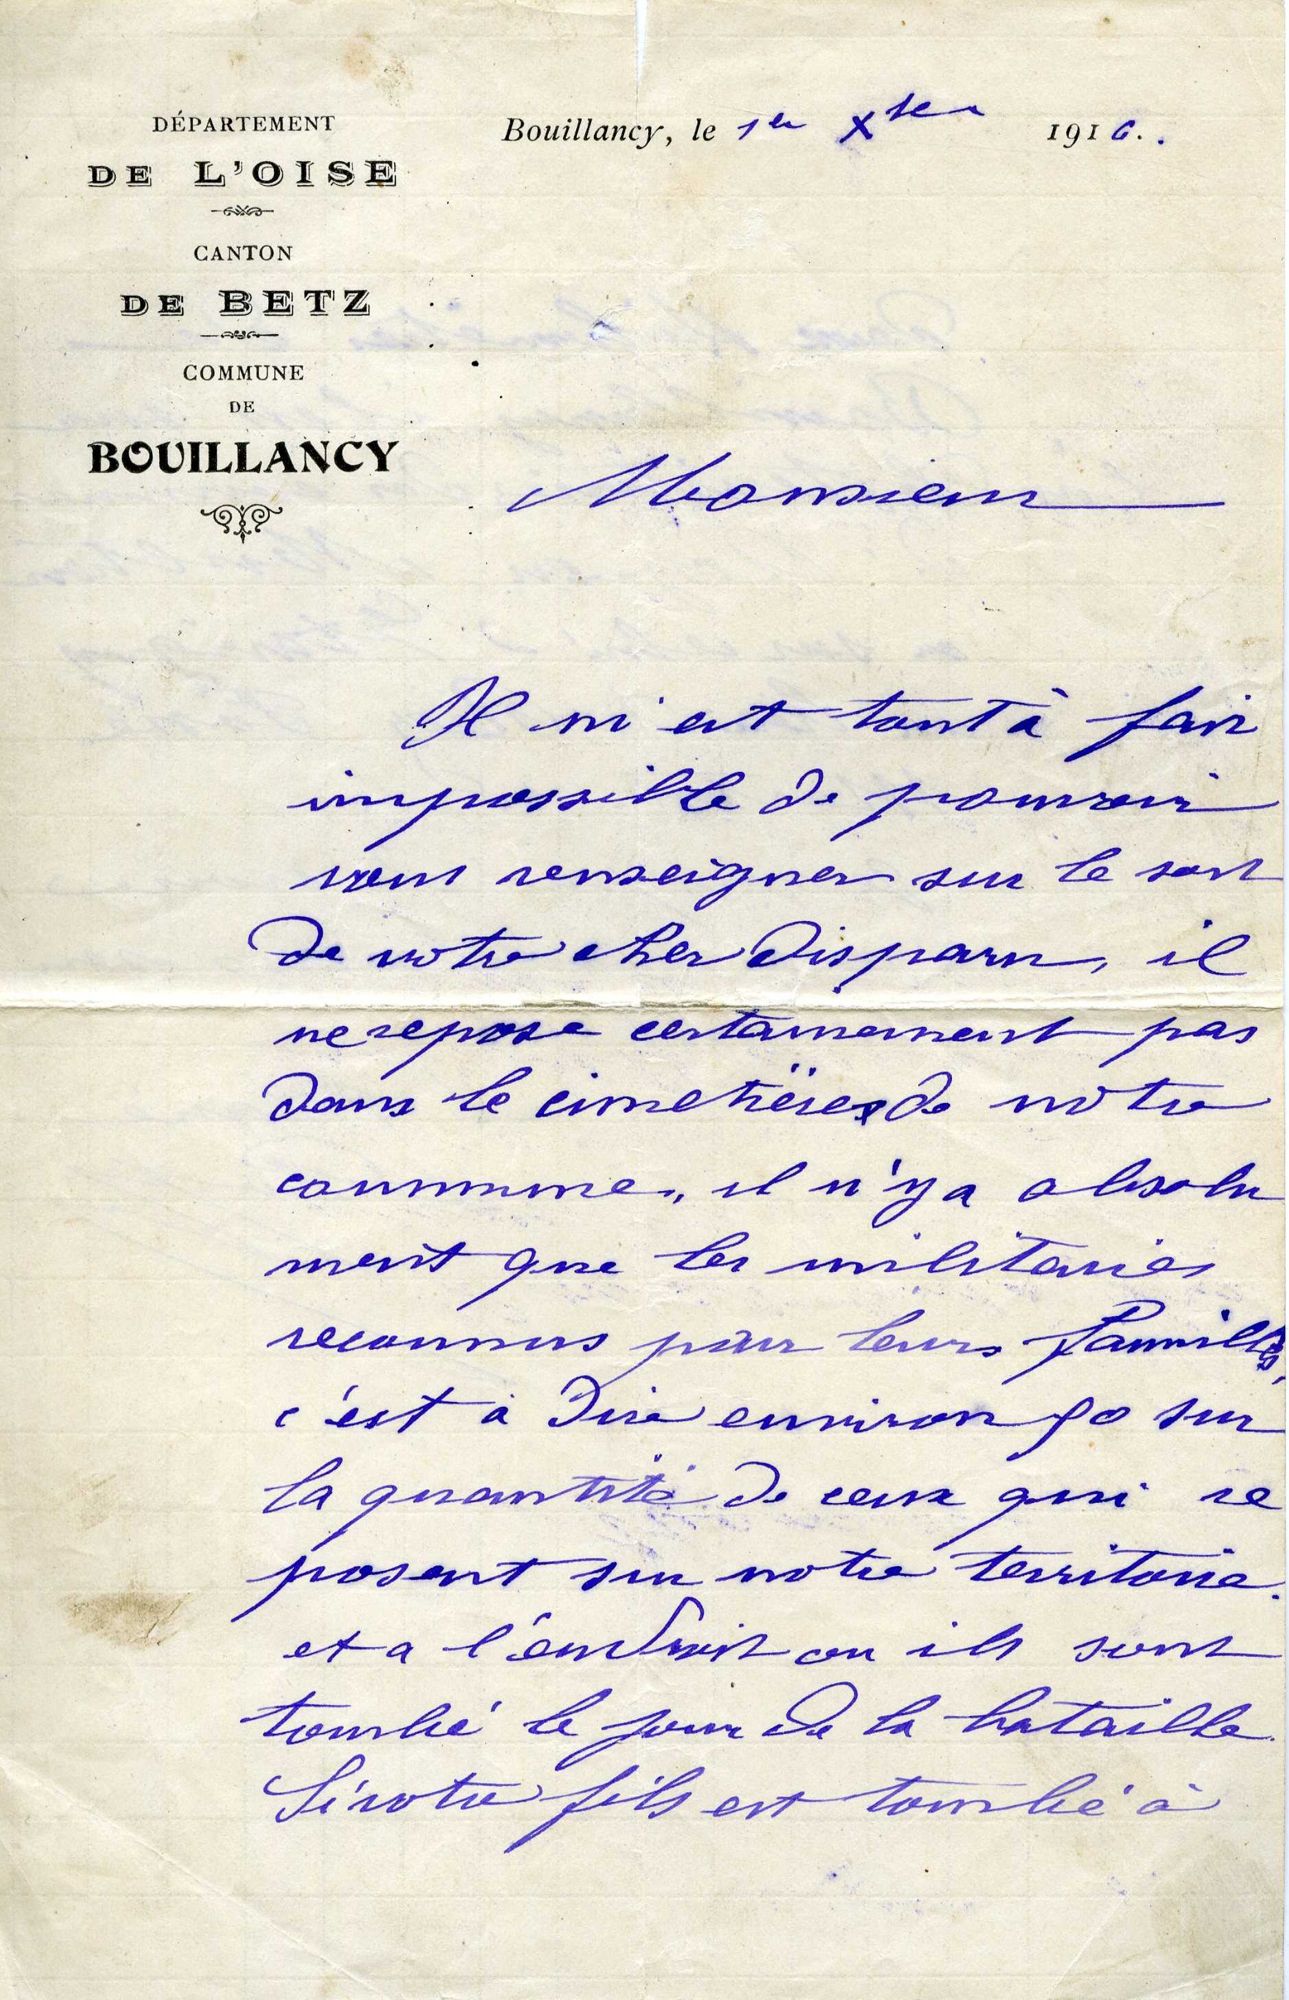 DÉPARTEMENT
DE L'OISE
CANTON
DE BETZ
COMMUNE
DE
BOUILLANCY
Bouillancy, le 1er Xbre 1916.
Monsieur
Il m'est tout à fait
impossible de pouvoir
vous renseigner sur le sort
de votre cher disparu, il
ne repose certainement pas
dans le cimetière de notre
commune, il n'y a absolu
ment que les militaires
reconnus par leurs familles,
c'est à dire environ 90 sur
la quantité de ceux qui re
posent sur notre territoire.
et a l'endroit ou ils sont
tombé le jour de la bataille.
Si votre fils est tombé à